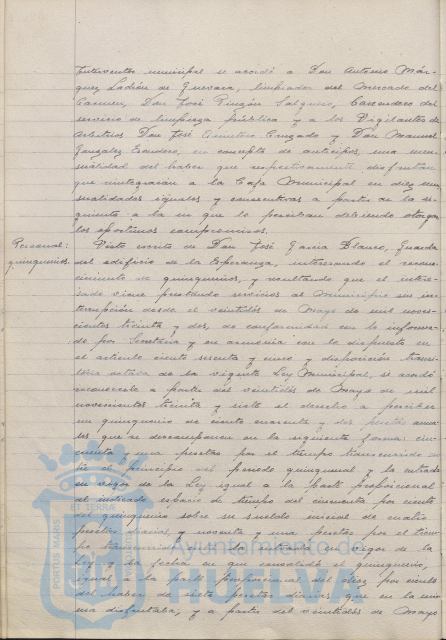 Interventor municipal se acordó a Don Antonio Már-
quez Ladrón de Guevara, limpiador del Mercado del
Carmen, Don José Pinzón Salguero, Carrendero del
servicio de limpieza pública y a los Vigilantes de
Arbitrios Don José Cruzado y Don Manuel
González Escudero, en concepto de anticipos, una men-
sualidad del haber que respectivamente disfrutan
que reintegrarán a la Caja Municipal en diez men-
sualidades iguales y consecutivas a partir de la si-
guiente a la en que lo perciban debiendo otorgar
los oportunos compromisos.
Personal:
quinquenios.
Visto escrito de Don José García Blanco, Guarda
del edificio de la Esperanza, interesando el recono-
cimiento de quinquenios, y resultando que el intere-
sado viene prestando servicios al Municipio sin in-
terrupción desde el veintidós de Mayo de mil nove-
cientos treinta y dos, de conformidad con lo informa-
do por Secretaría y en armonía con lo dispuesto en
el artículo ciento sesenta y cinco y disposición transi-
toria octava de la vigente Ley Municipal, se acordó
reconocerle a partir del veintidós de Mayo de mil
novecientos treinta y siete el derecho a percibir
un quinquenio de ciento cuarenta y dos pesetas anua-
les que se descomponen en la siguiente forma: cin-
cuenta y una pesetas por el tiempo transcurrido en-
tre el principio del periodo quinquenal y la entrada
en vigor de la Ley igual a la parte proporcional
al indicado espacio de tiempo del cincuenta por ciento
del quinquenio sobre su sueldo inicial de cuatro
pesetas diarias, y noventa y una pesetas por el tiem-
po transcurrido entre la entrada en vigor de la
Ley y la fecha en que consolidó el quinquenio,
igual a la parte proporcional del diez por ciento
del haber de siete pesetas diarias que en la mis-
ma disfrutaba, y a partir del veintidós de Mayo
PORTUS MARIS
ET TERRAE
Ayuntamiento de
HUELVA